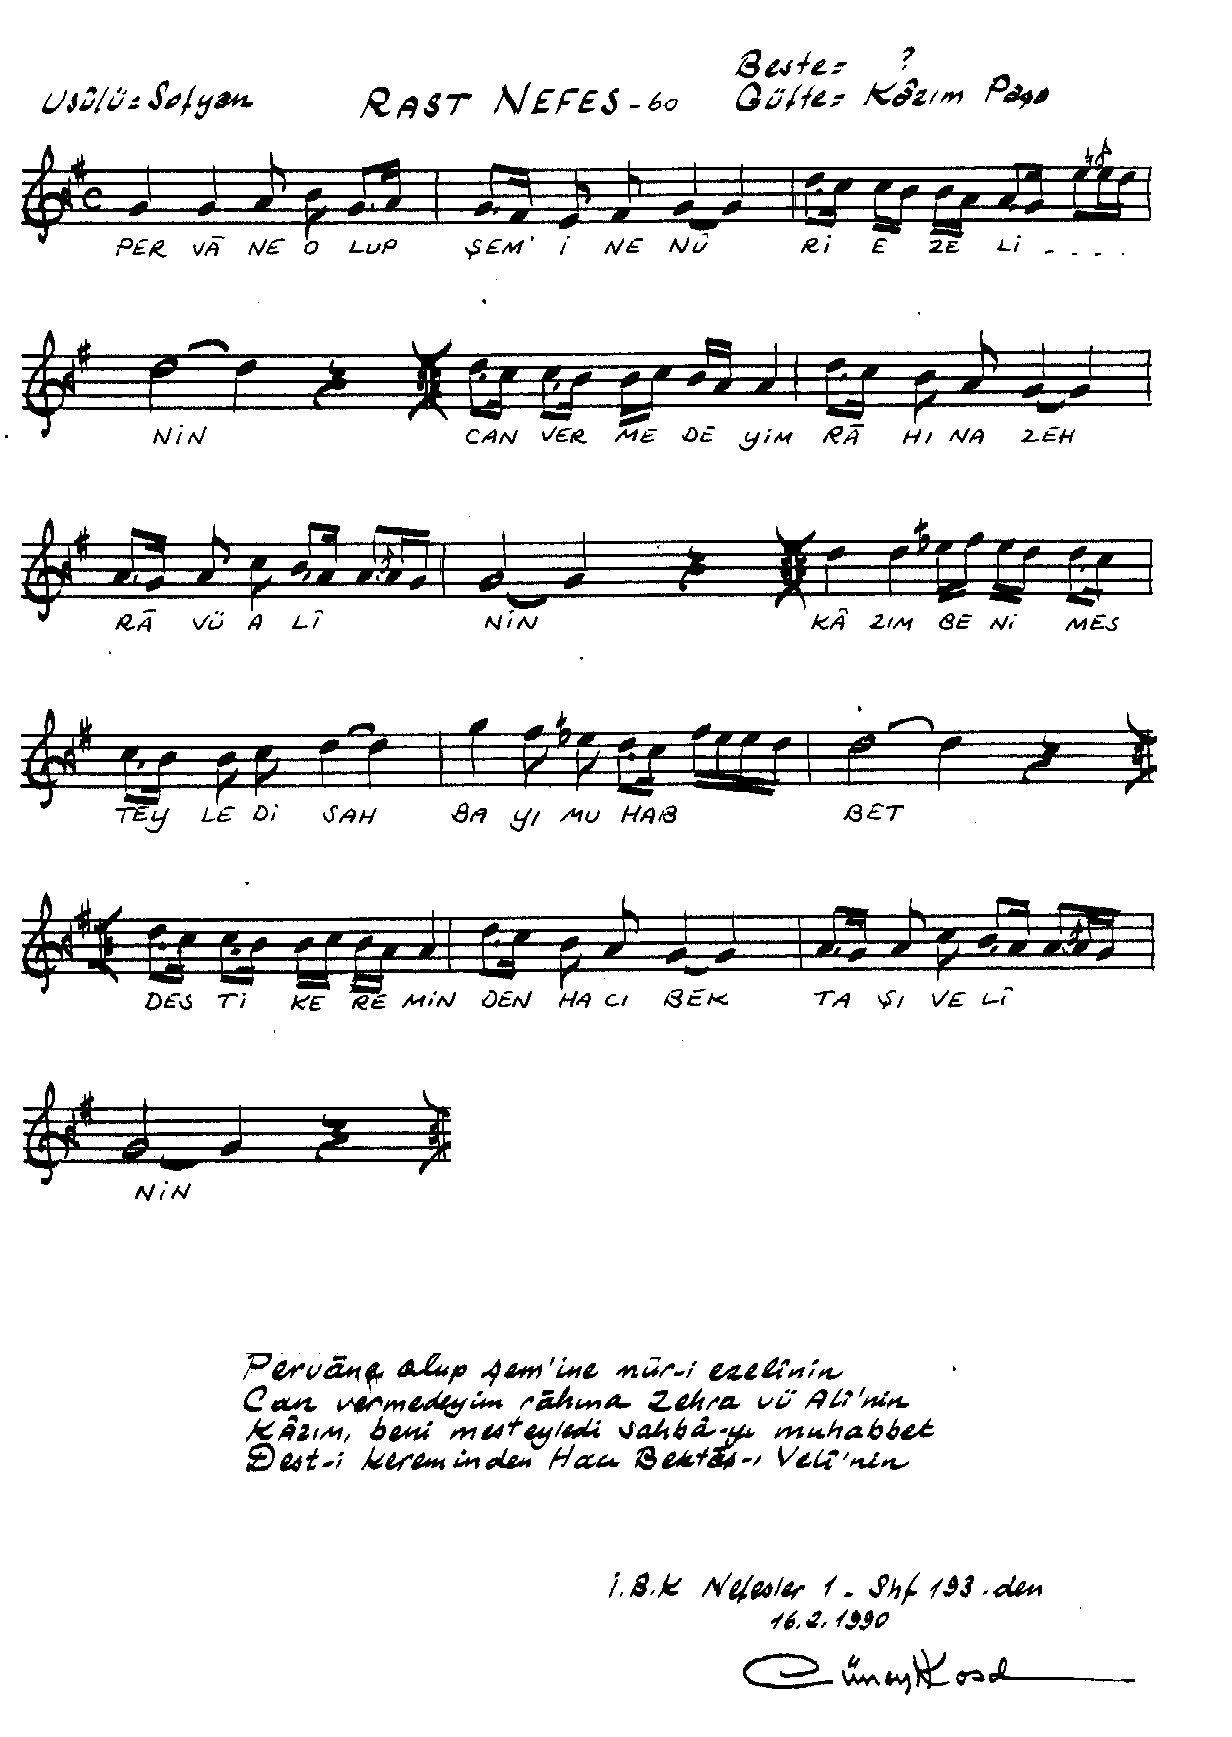 Usûlü= Sofyan RAST NEFES - 60 Beste= ?
Güfte= Kâzım Paşa
PER VÂ NE O LUP ŞEM' İ NE NÛ Rİ E ZE LÎ - - - .
NİN CAN VER ME DE YİM RÂ HI NA ZEH
RÂ VÜ A LÎ NİN KÂ ZIM BE Nİ MES
TEY LE Dİ SAH BA YI MU HAB BET
DES Tİ KE RE MİN DEN HA CI BEK TA ŞI VE LÎ
NİN
Pervâne olup şem'ine nûr-i ezelînin
Can vermedeyim râhına Zehra vü Alî'nin
Kâzım, beni mesteyledi sahbâ-yı muhabbet
Dest-i kereminden Hacı Bektâş-ı Velî'nin
İ.B.K Nefesler 1 - Shf 193.den
16.2.1990
Güney Kosal